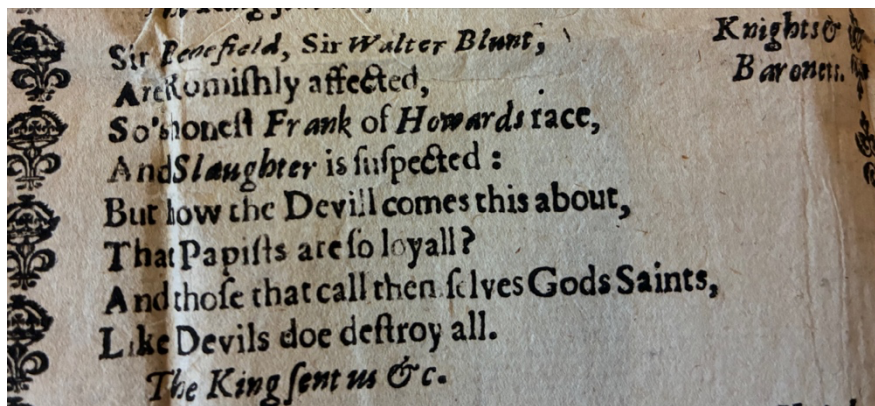 Sir Peerefield, Sir Walter Blunt,
Knights &
Baronets.
Are Romiſhly affected,
So's honeſt Frank of Howards race,
And Slaughter is ſuſpected :
But how the Devill comes this about,
That Papiſts are ſo loyall?
And thoſe that call themſelves Gods Saints,
Like Devils doe deſtroy all.
The King ſent us &c.